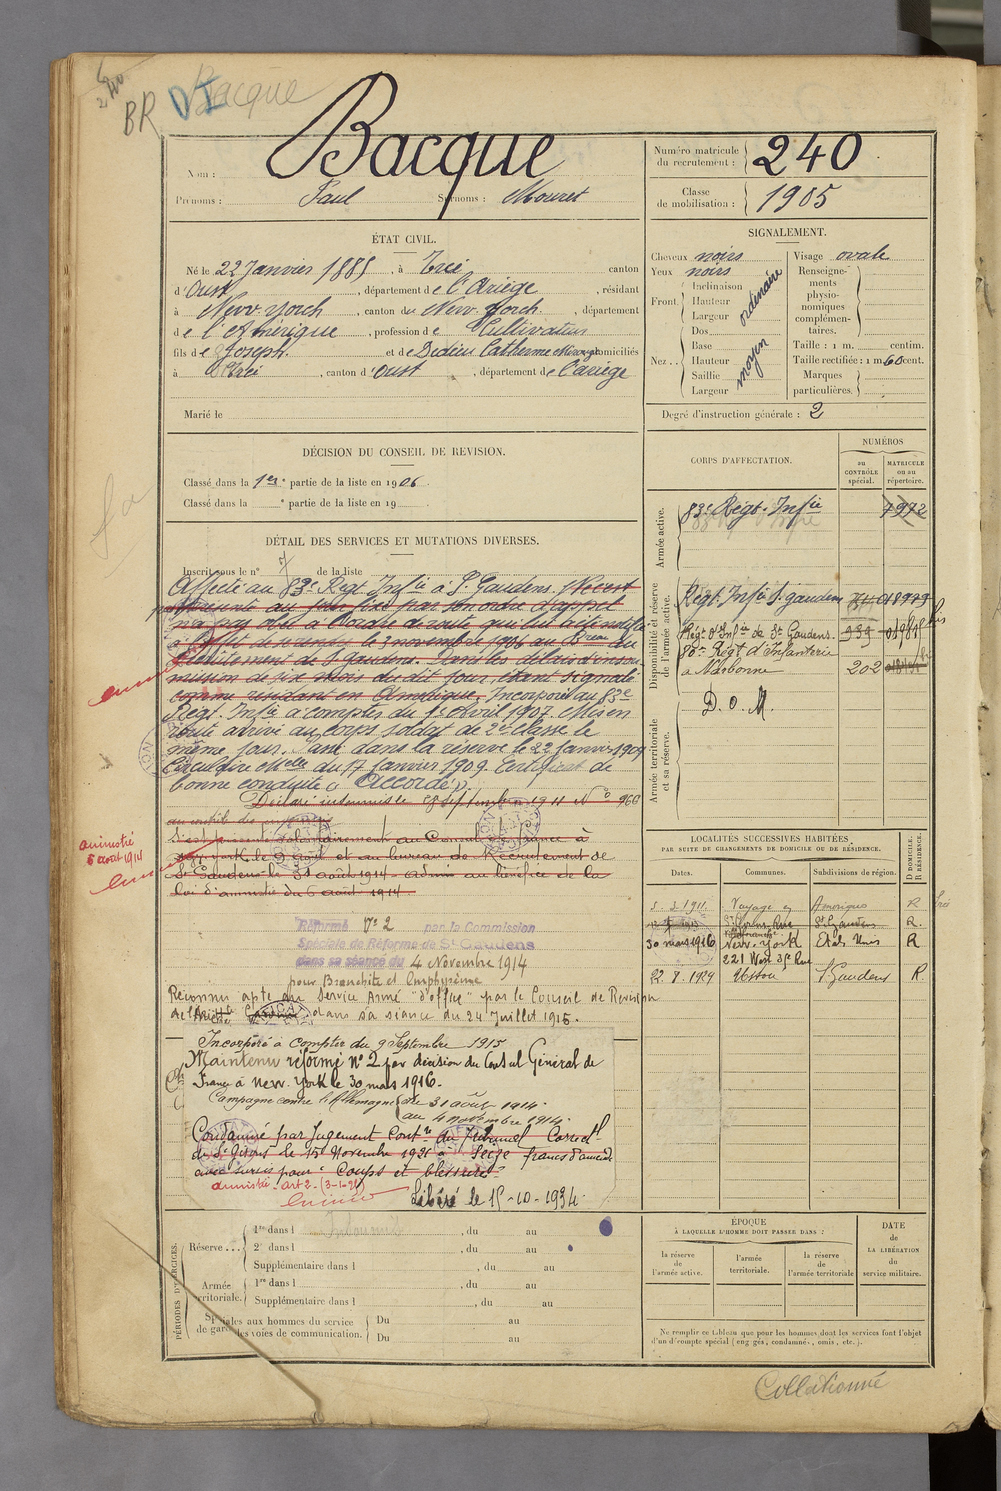 Bacque
BR
Nom : Bacque
Prénoms : Paul Surnoms : Mouret
Numéro matricule du recrutement : 240
Classe de mobilisation : 1905
ÉTAT CIVIL.
Né le 22 Janvier 1885, à Ercé canton
d'Oust, département de l'Ariège, résidant
à New-Yorck, canton du New-Yorck, département
de l'Amérique, profession de Cultivateur
fils de Joseph et de Dedieu Catherine domiciliés
à Ercé, canton d'Oust, département de l'Ariège
Marié le
SIGNALEMENT.
Cheveux noirs
Yeux noirs
Front Inclinaison Hauteur Largeur ordinaire
Nez Dos Base Hauteur Saillie Largeur moyen
Visage ovale
Renseignements physionomiques complémentaires.
Taille : 1 m. centim.
Taille rectifiée : 1 m 60 cent.
Marques particulières.
Degré d'instruction générale : 2
DÉCISION DU CONSEIL DE REVISION.
Classé dans la 1re partie de la liste en 1906.
Classé dans la e partie de la liste en 19
DÉTAIL DES SERVICES ET MUTATIONS DIVERSES.
Inscrit sous le n° 7 de la liste
Affecté au 83e Régt Infie à St Gaudens. N'est
présenté au jour fixé par son ordre d'appel
n'a pas obéi à l'ordre de route qui lui a été notifié
à le 3 novembre 1906 au Breau de
Recrutement de St Gaudens. Dans les délais d'insou-
mission de six mois du dit jour, étant signalé
comme résidant en Amérique. Incorporé au 83e
Régt. Infie à compter du 1er Avril 1907. Mis en
route arrivé au corps soldat de 2e classe le
même jour. Passé dans la réserve le 22 Janvier 1909
Circulaire Melle du 17 Janvier 1909. Certificat de
bonne conduite « Accordé ».
Déclaré insoumis le 28 septembre 1911 N° 966
S'est présenté volontairement au Consulat de france à
New-york le 9 août et au bureau de Recrutement de
St Gaudens le 31 août 1914 - admis au bénéfice de la
loi d'amnistie du 5 août 1914
amnistié
5 août 1914
Réformé n° 2 par la Commission
Spéciale de Réforme de St Gaudens
dans sa séance du 4 Novembre 1914
pour Bronchite et Emphysème
Reconnu apte au Service Armé "d'office" par le Conseil de Revision
de l'Ariège dans sa séance du 24 Juillet 1915.
Incorporé à compter du 9 Septembre 1915
Maintenu réformé n° 2 par décision du Consul Général de
France à New-York le 30 mars 1916.
Campagne contre l'Allemagne du 31 août 1914
au 4 novembre 1914
Condamné par Jugement Contre du Tribunal Correctl
de St Girons le 15 Novembre 1921 à Seize francs d'amende
avec sursis pour "Coups et blessures"
amnistié - art 2 - (3-1-25)
Libéré le 15-10-1934.
CORPS D'AFFECTATION.
NUMÉROS
au CONTRÔLE spécial.
MATRICULE ou au répertoire.
Armée active.
83e Régt. Infie 7972
Disponibilité et réserve de l'armée active.
Régt. Infie St. gaudens 018979
Régt d'Infie de St Gaudens. 939
80e Régt d'Infanterie
à Narbonne 202
Armée territoriale et sa réserve.
D. O. M.
LOCALITÉS SUCCESSIVES HABITÉES
PAR SUITE DE CHANGEMENTS DE DOMICILE OU DE RÉSIDENCE.
Dates. Communes. Subdivisions de région. D DOMICILE. R RÉSIDENCE.
5. 2. 1911. Voyage en Amérique R
St Gaudens R.
30 mars 1916 New-York Etats Unis R
221 West 35e Rue
22. 8. 1929 Ustou St Gaudens R.
PÉRIODES D'EXERCICES.
Réserve 1re dans l , du au
2e dans l , du au
Supplémentaire dans l , du au
Armée territoriale. 1re dans l , du au
Supplémentaire dans l , du au
Spéciales aux hommes du service de garde des voies de communication. Du au
Du au
ÉPOQUE
À LAQUELLE L'HOMME DOIT PASSER DANS :
la réserve de l'armée active.
l'armée territoriale.
la réserve de l'armée territoriale
DATE de LA LIBÉRATION du service militaire.
Ne remplir ce tableau que pour les hommes dont les services font l'objet
d'un décompte spécial (engagés, condamnés, omis, etc.).
Collationné